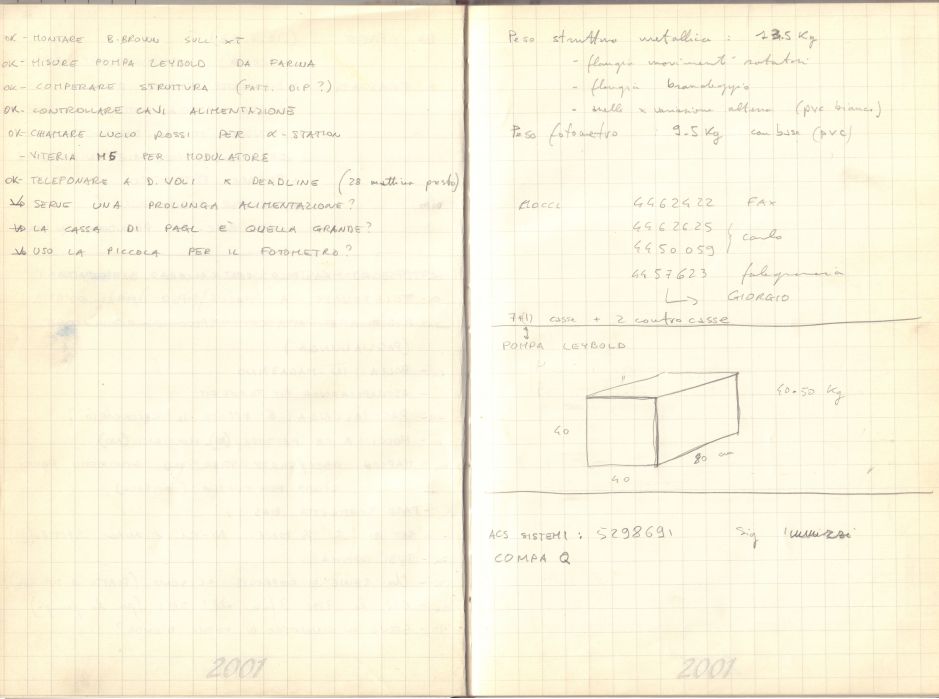 OK - MONTARE B-BROWN SULL' XT
OK - MISURE POMPA LEYBOLD DA FARINA
OK - COMPERARE STRUTTURA (FATT. DIP?)
OK - CONTROLLARE CAVI ALIMENTAZIONE
OK - CHIAMARE LUCIO ROSSI PER α-STATION
- VITERIA M5 PER MODULATORE
OK - TELEFONARE A D. VOLI X DEADLINE (28 mattina presto)
NO SERVE UNA PROLUNGA ALIMENTAZIONE?
NO LA CASSA DI PAGL E' QUELLA GRANDE?
USO LA PICCOLA PER IL FOTOMETRO?
2001
Peso struttura metallica : 13.5 Kg
- flangia movimenti rotatori
- flangia brandeggio
- x variazione altezza (pvc bianco)
Peso fotometro : 9.5 Kg con base (pvc)
4462422 FAX
4462625
4450059 } carlo
4457623 falegnameria
↳ GIORGIO
7+(1) casse + 2 contro casse
↓
POMPA LEYBOLD
40-50 Kg
40
80 cm
40
ACS SISTEMI : 5298691 Sig
COMPA Q
2001